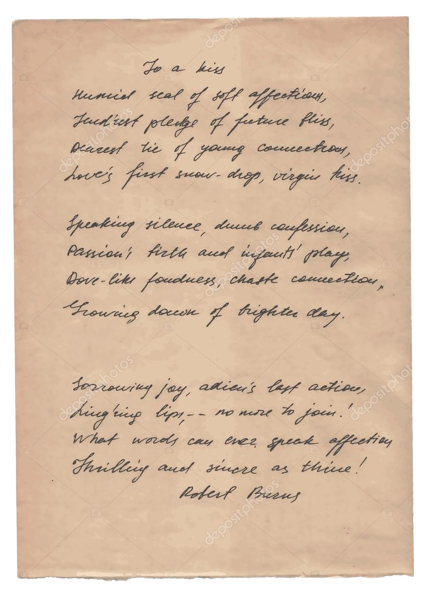 To a kiss
Humid seal of soft affections,
Tend'rest pledge of future bliss,
Dearest tie of young connections,
Love's first snow-drop, virgin kiss.
Speaking silence, dumb confession,
Passion's birth and infants' play,
Dove-like fondness, chaste connection,
Growing dawn of brighter day.
Sorrowing joy, adieu's last action,
Ling'ring lips, -- no more to join!
What words can ever speak affection
Thrilling and sincere as thine!
Robert Burns
depositphotos